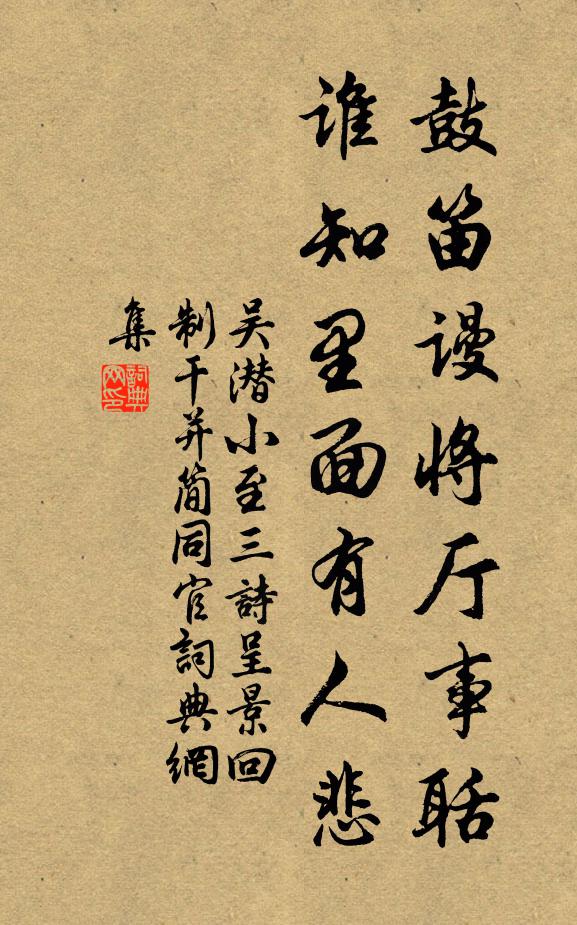 鼓笛谩将厅事聒
谁知里面有人悲
吴潜小至三詩呈景回
制干并简同官詞典網
集
詞典網印